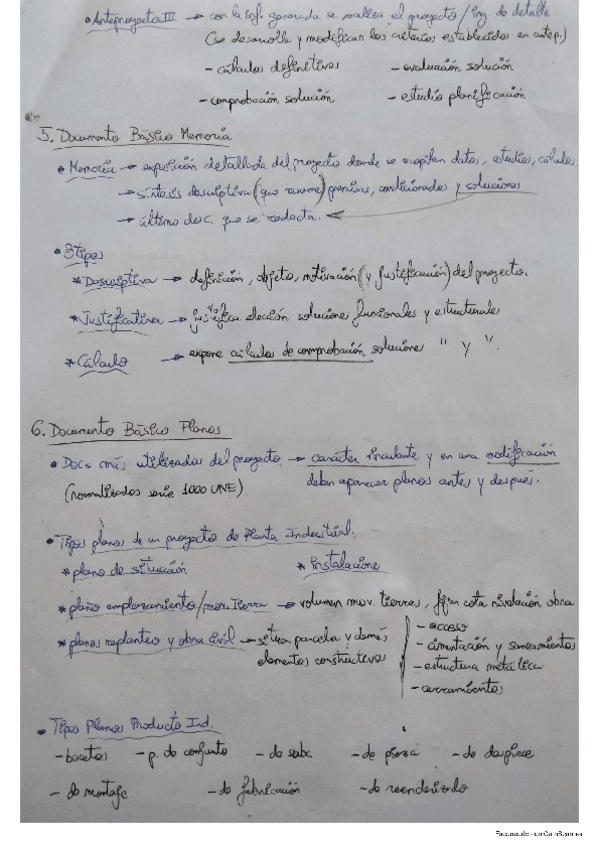 • Anteproyecto III → con la inf. generada se realiza el proyecto / ing. de detalle
(se desarrolla y modifican los criterios establecidos en antep.)
- cálculos definitivos - evaluación solución
- comprobación solución - estudio planificación
5. Documento Básico Memoria
• Memoria → exposición detallada del proyecto donde se recopilan datos, estudios, cálculos
→ síntesis descriptiva (que resume) premisas, condicionados y soluciones
→ último doc. que se redacta.
• 3 tipos
* Descriptiva → definición, objeto, motivación (y justificación) del proyecto.
* Justificativa → justifica elección soluciones funcionales y estructurale
* Cálculo → expone cálculos de comprobación solucione " y ".
6. Documento Básico Planos
• Docs más utilizados del proyecto → carácter vinculante y en una modificación
(normalizados serie 1000 UNE) deben aparecer planos antes y después.
• Tipos planos de un proyecto de Planta Industrial.
* plano de situación * instalacione
* plano emplazamiento/mov. tierra → volumen mov. tierras, fijan cota nivelación obra
* planos replanteo y obra civil → situa parcela y demás
elementos constructivos
- acceso
- cimentación y saneamientos
- estructura metálica
- cerramientos
• Tipos Planos Producto Ind.
- bocetos - p. de conjunto - de subc. - de pieza - de despiece
- de montaje - de fabricación - de renderizado